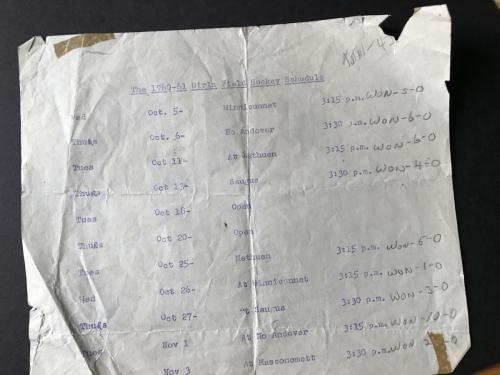 Total-4-
The 1960-61 Girls Field Hockey Schedule
Wed Oct. 5- Winnicunnet 3:15 p.m. WON-5-0
Thurs Oct. 6- No Andover 3:30 p.m. WON-6-0
Tues Oct 11- At Methuen 3:15 p.m. WON-6-0
Thurs Oct 13- Saugus 3:30 p.m. WON-4-0
Tues Oct 18- Open
Thurs Oct 20- Open
Tues Oct 25- Methuen 3:15 p.m. WON-5-0
Wed Oct 26- At Winnicunnet 3:15 p.m. WON-1-0
Thurs Oct 27- At Saugus 3:30 p.m. WON-3-0
Tues Nov 1 At No Andover 3:15 p.m. WON-10-0
Nov 3 At Masconomett 3:30 p.m. WON 2